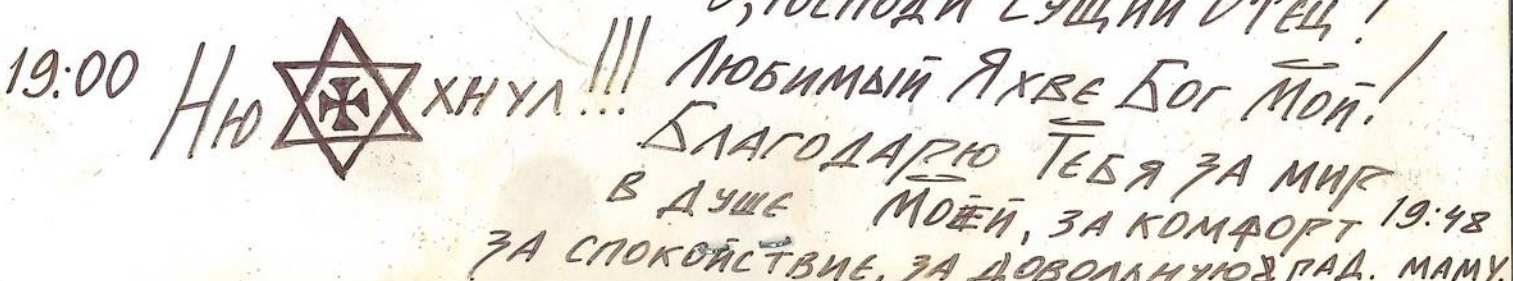 О, ГОСПОДИ СУЩИЙ ОТЕЦ!
19:00 Ню ХНУЛ!!! Любимый Яхве Бог Мой!
Благодарю Тебя за мир
в душе Моей, за комфорт 19:48
за спокойствие, за довольную & рад. маму.